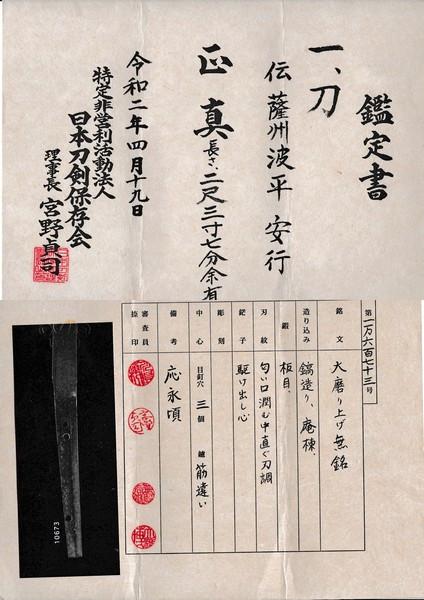 鑑定書
一、刀
伝 薩州波平 安行
正真 長さ、二尺三寸七分余有
令和二年四月十九日
特定非営利活動法人
日本刀剣保存会
理事長 宮野貞司
第一万六百七十三号
銘文 大磨り上げ無銘
造り込み 鎬造り、庵棟、
鍛 板目、
刃紋 匂い口潤む中直ぐ刃調
鋩子 駆け出し心
彫刻
中心 目釘穴 三個 鑢 筋違い
備考 応永頃
審査員
捺印
10673